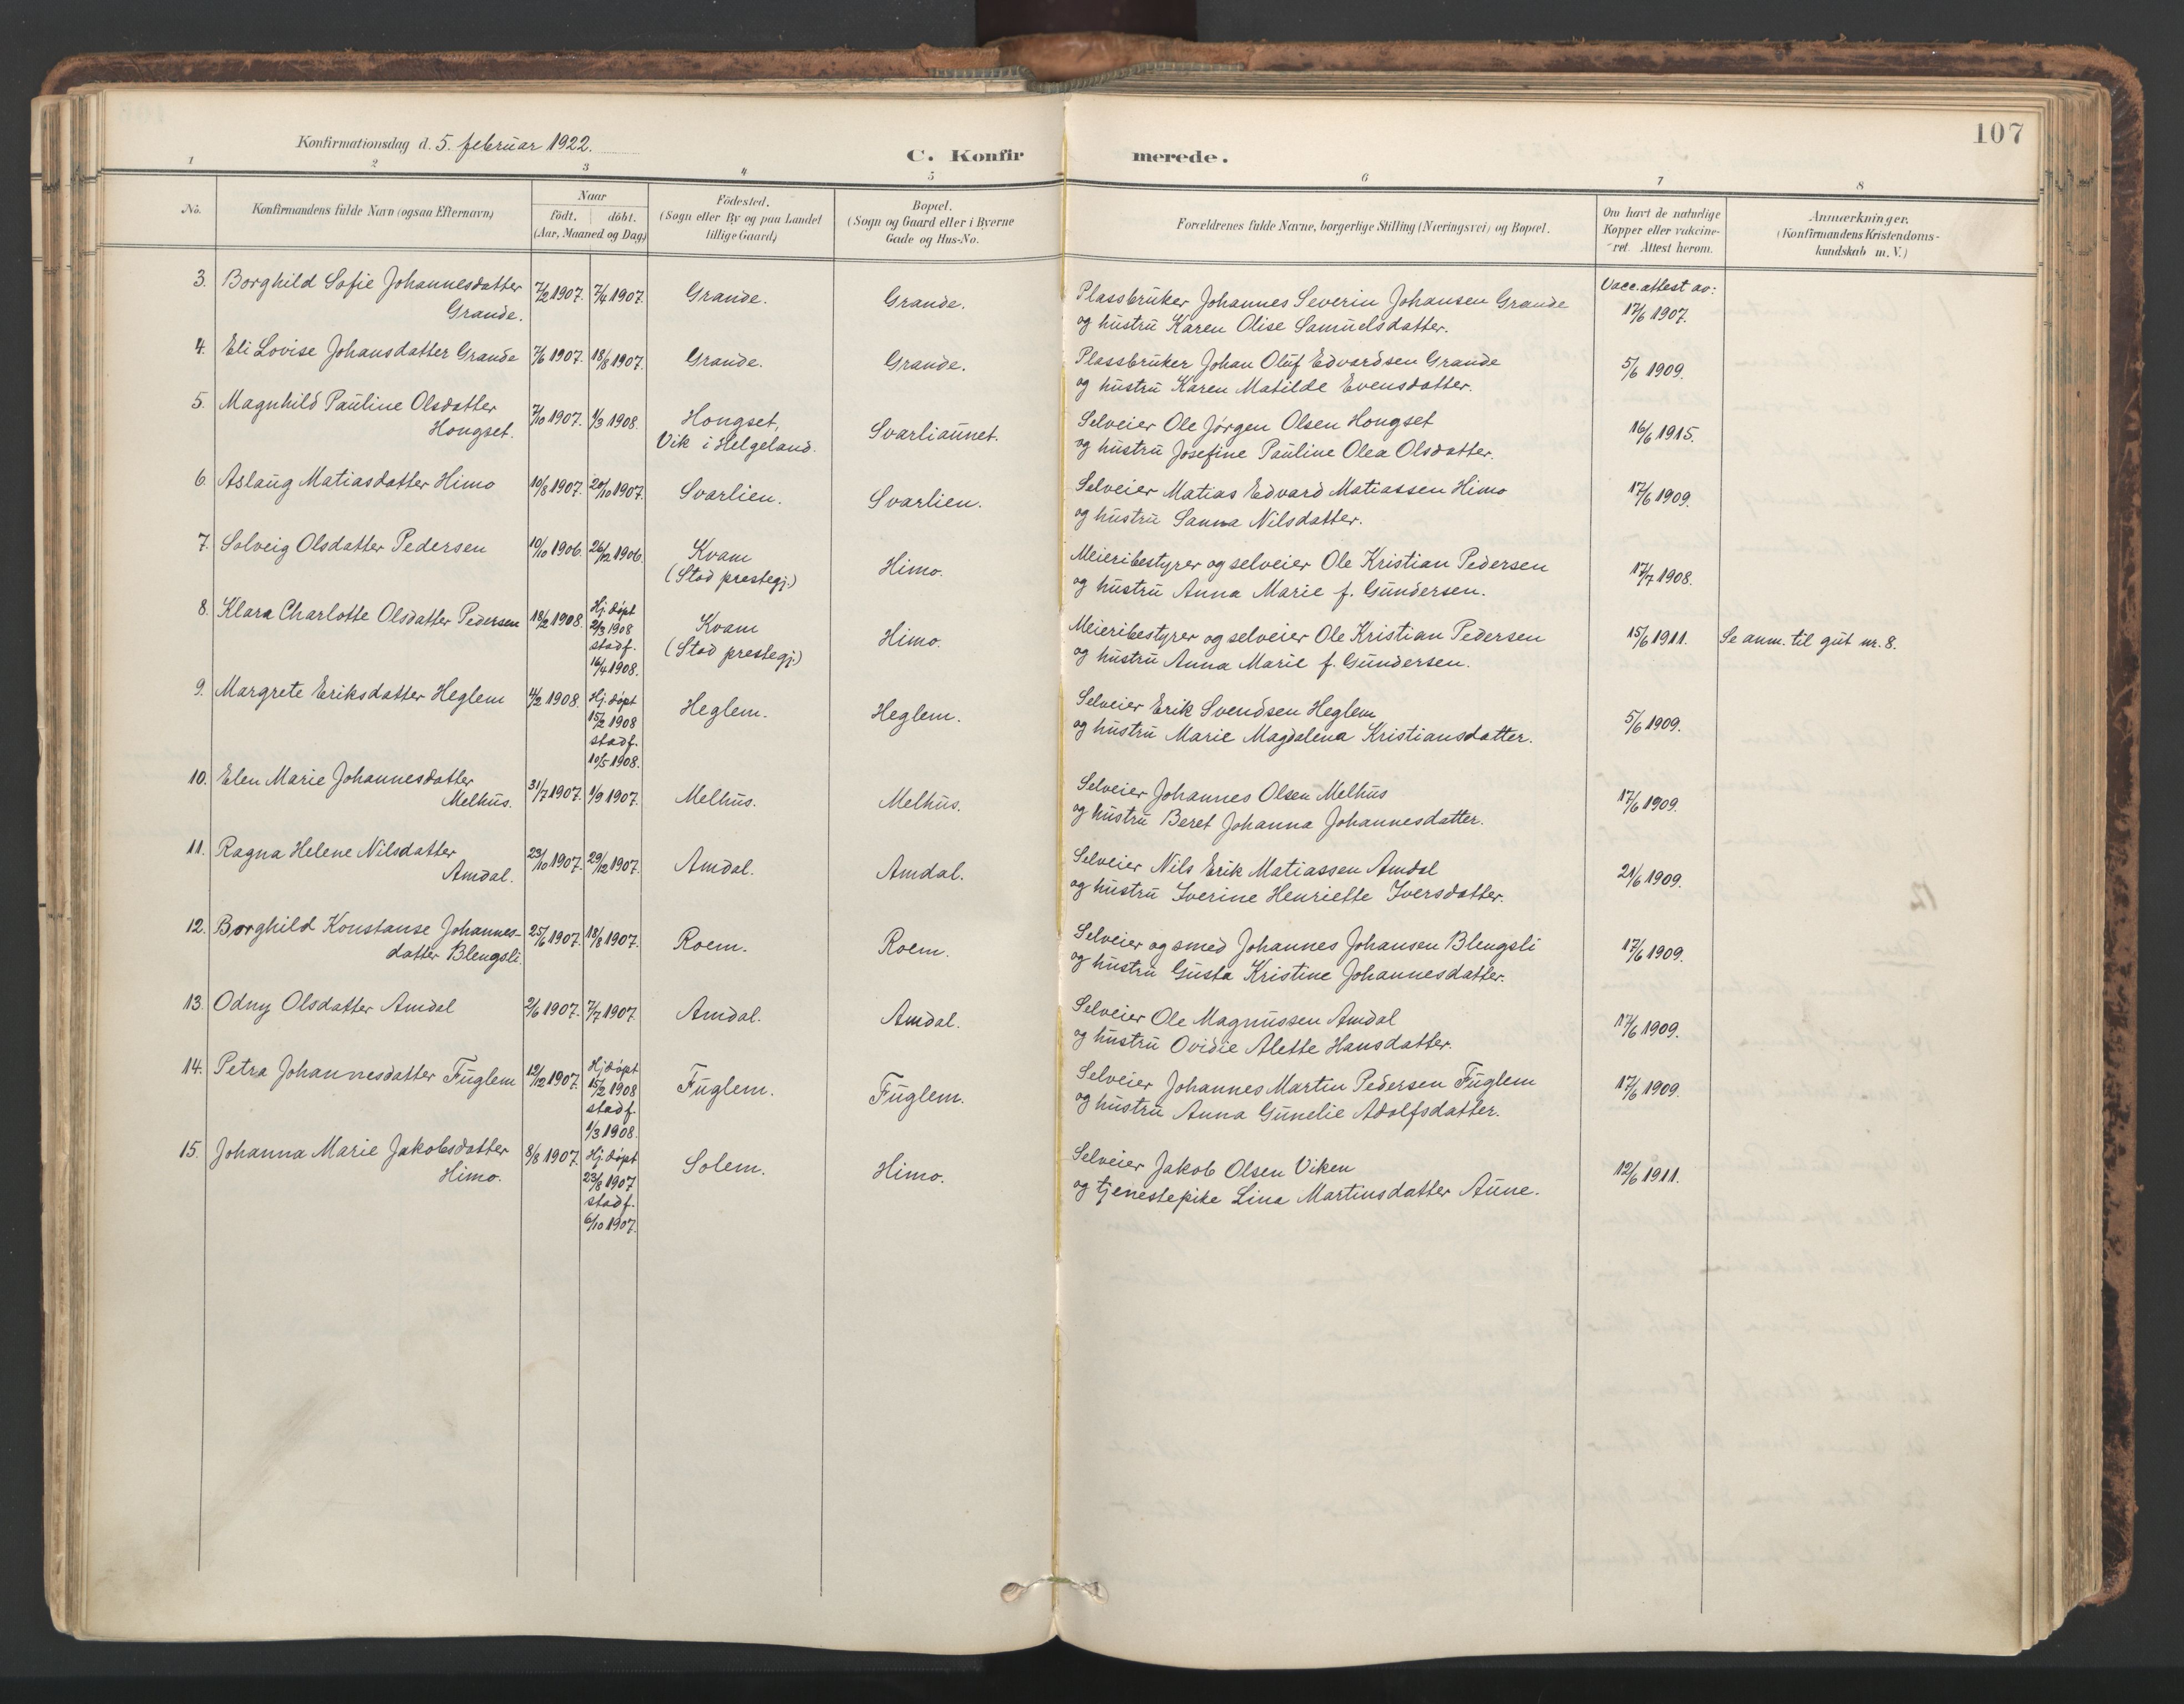 107
Konfirmationsdag d. 5. februar 1922.
C. Konfirmerede.
1 2 3 4 5 6 7 8
No. Konfirmandens fulde Navn (ogsaa Efternavn)
Naar födt. döbt. (Aar, Maaned og Dag)
Födested. (Sogn eller By og paa Landet tillige Gaard)
Bopæl. (Sogn og Gaard eller i Byerne Gade og Hus-No.
Forældrenes fulde Navne, borgerlige Stilling (Næringsvei) og Bopæl.
Om havt de naturlige Kopper eller vakcineret. Attest herom.
Anmærkninger. (Konfirmandens Kristendomskundskab m. V.)
3. Borghild Sofie Johannesdatter Grande. 7/2 1907. 7/4 1907. Grande. Grande.
Plassbruker Johannes Severin Johansen Grande
og hustru Karen Olise Samuelsdatter.
Vacc.attest av: 17/6 1907.
4. Eli Lovise Johansdatter Grande 7/6 1907. 18/8 1907. Grande. Grande.
Plassbruker Johan Oluf Edvardsen Grande
og hustru Karen Matilde Evensdatter.
5/6 1909.
5. Magnhild Pauline Olsdatter Hongset. 7/10 1907. 1/3 1908. Hongset, Vik i Helgeland. Svarliaunet.
Selveier Ole Jørgen Olsen Hongset
og hustru Josefine Pauline Olea Olsdatter.
16/6 1915.
6. Aslaug Matiasdatter Himo 10/8 1907. 20/10 1907. Svarlien. Svarlien.
Selveier Matias Edvard Matiassen Himo
og hustru Sanna Nilsdatter.
17/6 1909.
7. Solveig Olsdatter Pedersen 10/10 1906. 26/12 1906. Kvam (Stod prestegj.) Himo.
Meieribestyrer og selveier Ole Kristian Pedersen
og hustru Anna Marie f. Gundersen.
17/7 1908.
8. Klara Charlotte Olsdatter Pedersen 18/2 1908. Hj. døpt 2/3 1908 stadf. 16/4 1908. Kvam (Stod prestegj.) Himo.
Meieribestyrer og selveier Ole Kristian Pedersen
og hustru Anna Marie f. Gundersen.
15/6 1911. Se anm. til gut nr. 8.
9. Margrete Eriksdatter Heglem 4/2 1908. Hj. døpt 15/2 1908 stadf. 10/5 1908. Heglem. Heglem.
Selveier Erik Svendsen Heglem
og hustru Marie Magdalena Kristiansdatter.
5/6 1909.
10. Elen Marie Johannesdatter Melhus. 31/7 1907. 1/9 1907. Melhus. Melhus.
Selveier Johannes Olsen Melhus
og hustru Beret Johanna Johannesdatter.
17/6 1909.
11. Ragna Helene Nilsdatter Amdal. 23/10 1907. 29/12 1907. Amdal. Amdal.
Selveier Nils Erik Matiassen Amdal
og hustru Iverine Henriette Iversdatter.
21/6 1909.
12. Borghild Konstanse Johannesdatter Blengsli. 25/6 1907. 18/8 1907. Roem. Roem.
Selveier og smed Johannes Johansen Blengsli
og hustru Gusta Kristine Johannesdatter.
17/6 1909.
13. Odny Olsdatter Amdal 2/6 1907. 7/7 1907. Amdal. Amdal.
Selveier Ole Magnussen Amdal
og hustru Ovidie Alette Hansdatter.
17/6 1909.
14. Petra Johannesdatter Fuglem 12/12 1907. Hj. døpt 15/2 1908 stadf. 1/3 1908. Fuglem. Fuglem.
Selveier Johannes Martin Pedersen Fuglem
og hustru Anna Gunelie Adolfsdatter.
17/6 1909.
15. Johanna Marie Jakobsdatter Himo. 8/8 1907. Hj. døpt 23/8 1907 stadf. 6/10 1907. Solem. Himo.
Selveier Jakob Olsen Viken
og tjenestepike Lina Martinsdatter Aune.
12/6 1911.